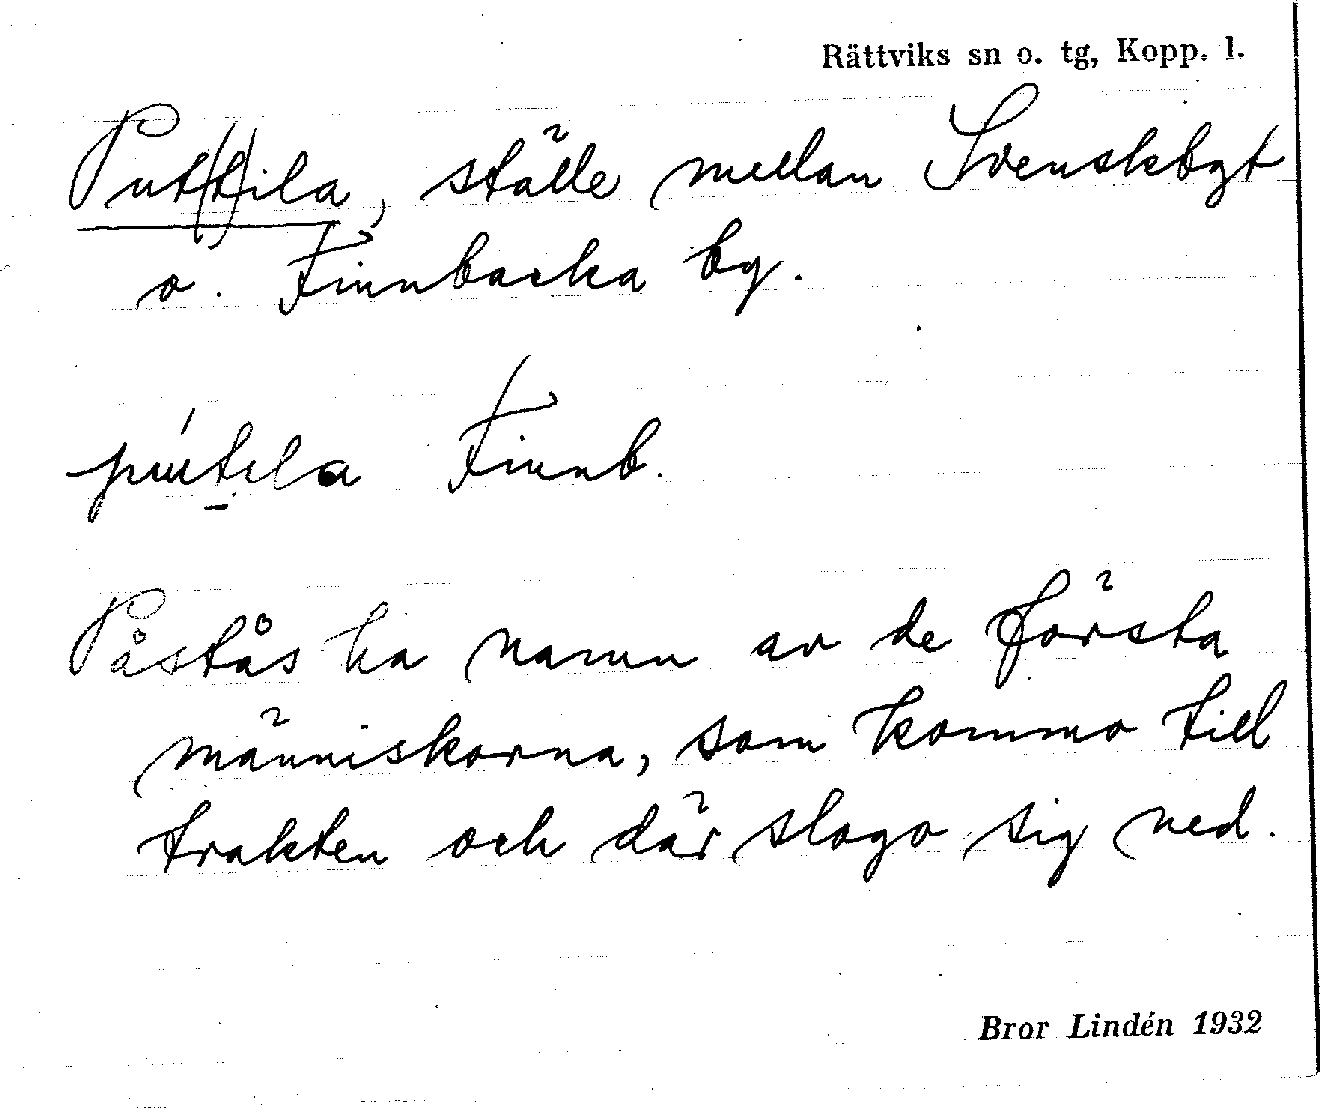 Rättviks sn o. tg, Kopp. l.
Put(t)ila, ställe mellan Svenskbyt
o. Finnbacka by.
pút̠ila Finnb.
Påstås ha namn av de första
människorna, som kommo till
trakten och där slogo sig ned.
Bror Lindén 1932